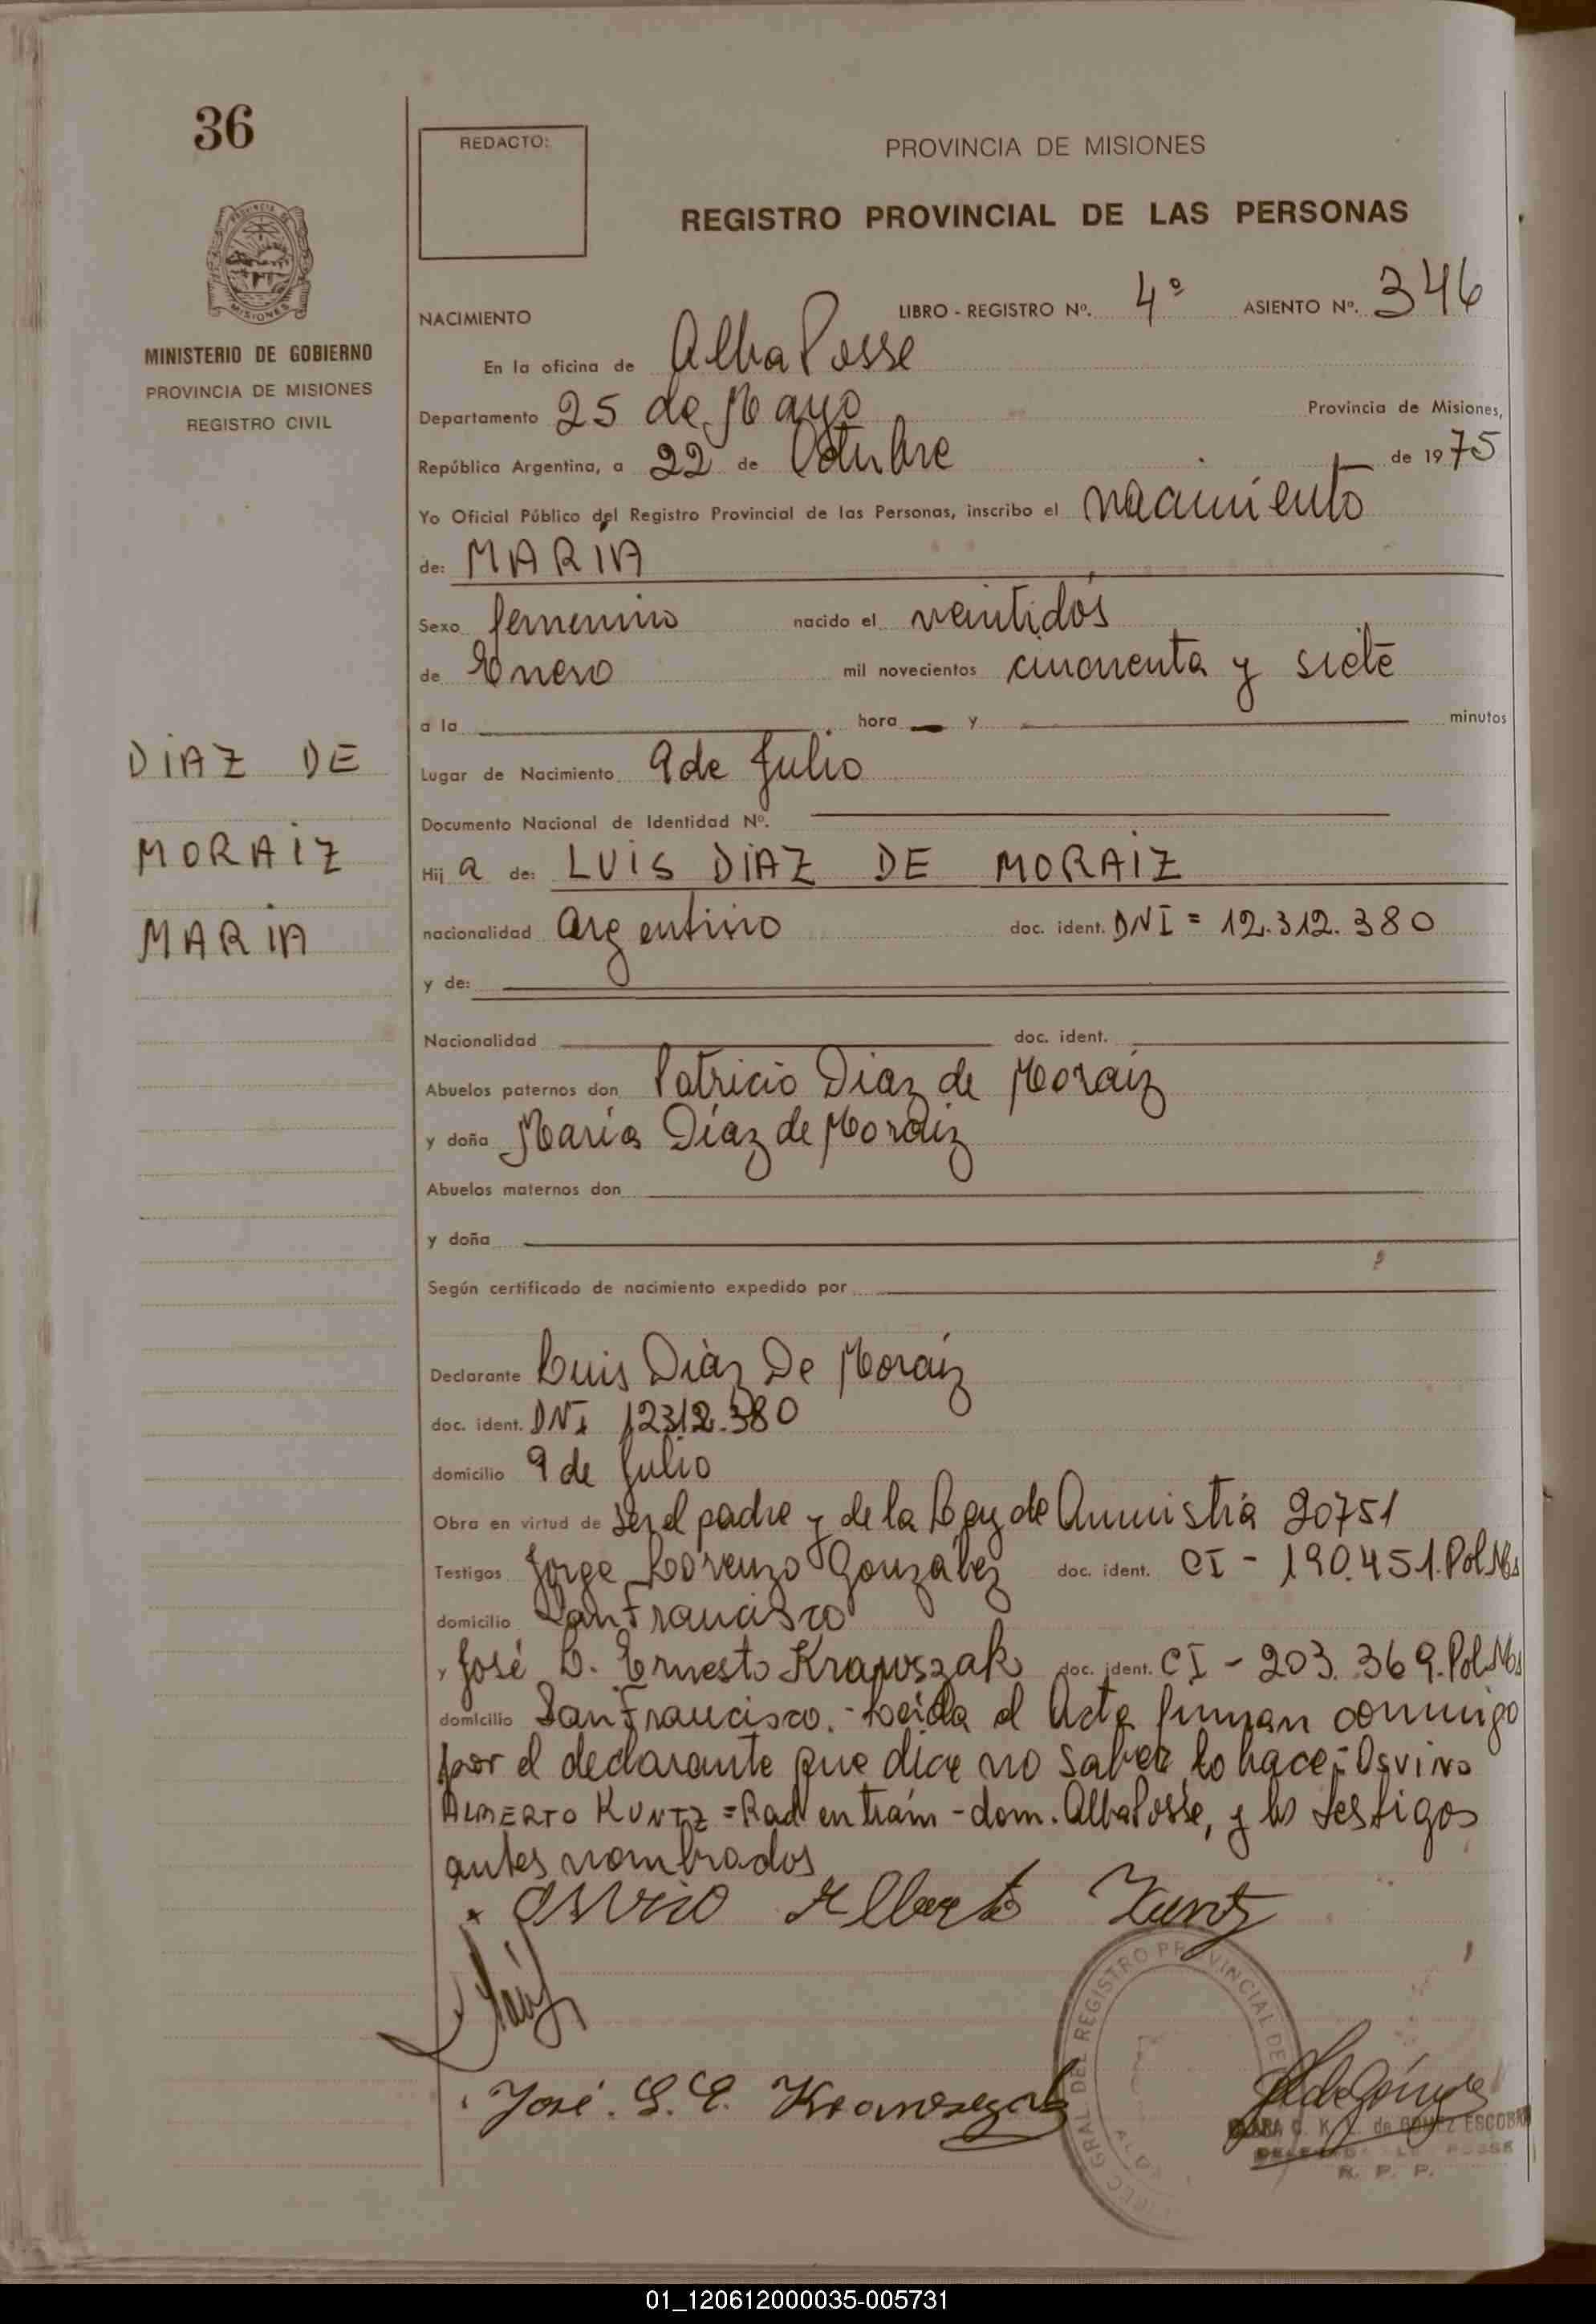 36
REDACTO:
PROVINCIA DE MISIONES
REGISTRO PROVINCIAL DE LAS PERSONAS
MISIONES
MINISTERIO DE GOBIERNO
PROVINCIA DE MISIONES
REGISTRO CIVIL
NACIMIENTO LIBRO - REGISTRO Nº. 4º ASIENTO Nº. 346
En la oficina de Alba Posse
Departamento 25 de Mayo Provincia de Misiones,
República Argentina, a 22 de Octubre de 1975
Yo Oficial Público del Registro Provincial de las Personas, inscribo el nacimiento
de: MARÍA
Sexo femenino nacido el veintidós
de Enero mil novecientos cincuenta y siete
a la hora y minutos
Lugar de Nacimiento 9 de Julio
Documento Nacional de Identidad Nº.
DÍAZ DE
MORAIZ
MARÍA
Hij a de: LUIS DÍAZ DE MORAIZ
nacionalidad argentino doc. ident. DNI = 12.312.380
y de:
Nacionalidad doc. ident.
Abuelos paternos don Patricio Díaz de Moraiz
y doña María Díaz de Moraiz
Abuelos maternos don
y doña
Según certificado de nacimiento expedido por
Declarante Luis Díaz De Moraiz
doc. ident. DNI 12312.380
domicilio 9 de Julio
Obra en virtud de ser el padre y de la Ley de Amnistía 20751
Testigos Jorge Lorenzo González doc. ident. CI - 190.451.Pol.Mns
domicilio San Francisco
y José L. Ernesto Krawszak doc. ident. CI - 203.369.Pol.Mns
domicilio San Francisco.- Leída el Acta firman conmigo
por el declarante que dice no saber lo hace.- Osvino
ALBERTO KUNTZ = Rad en trám - dom. Alba Posse, y los testigos
antes nombrados
Osvino Alberto Kuntz
José. L. E.
DIREC. GRAL DEL REGISTRO PROVINCIAL DE
C. K. de GOMEZ ESCOBAR
R. P. P.
01_120612000035-005731